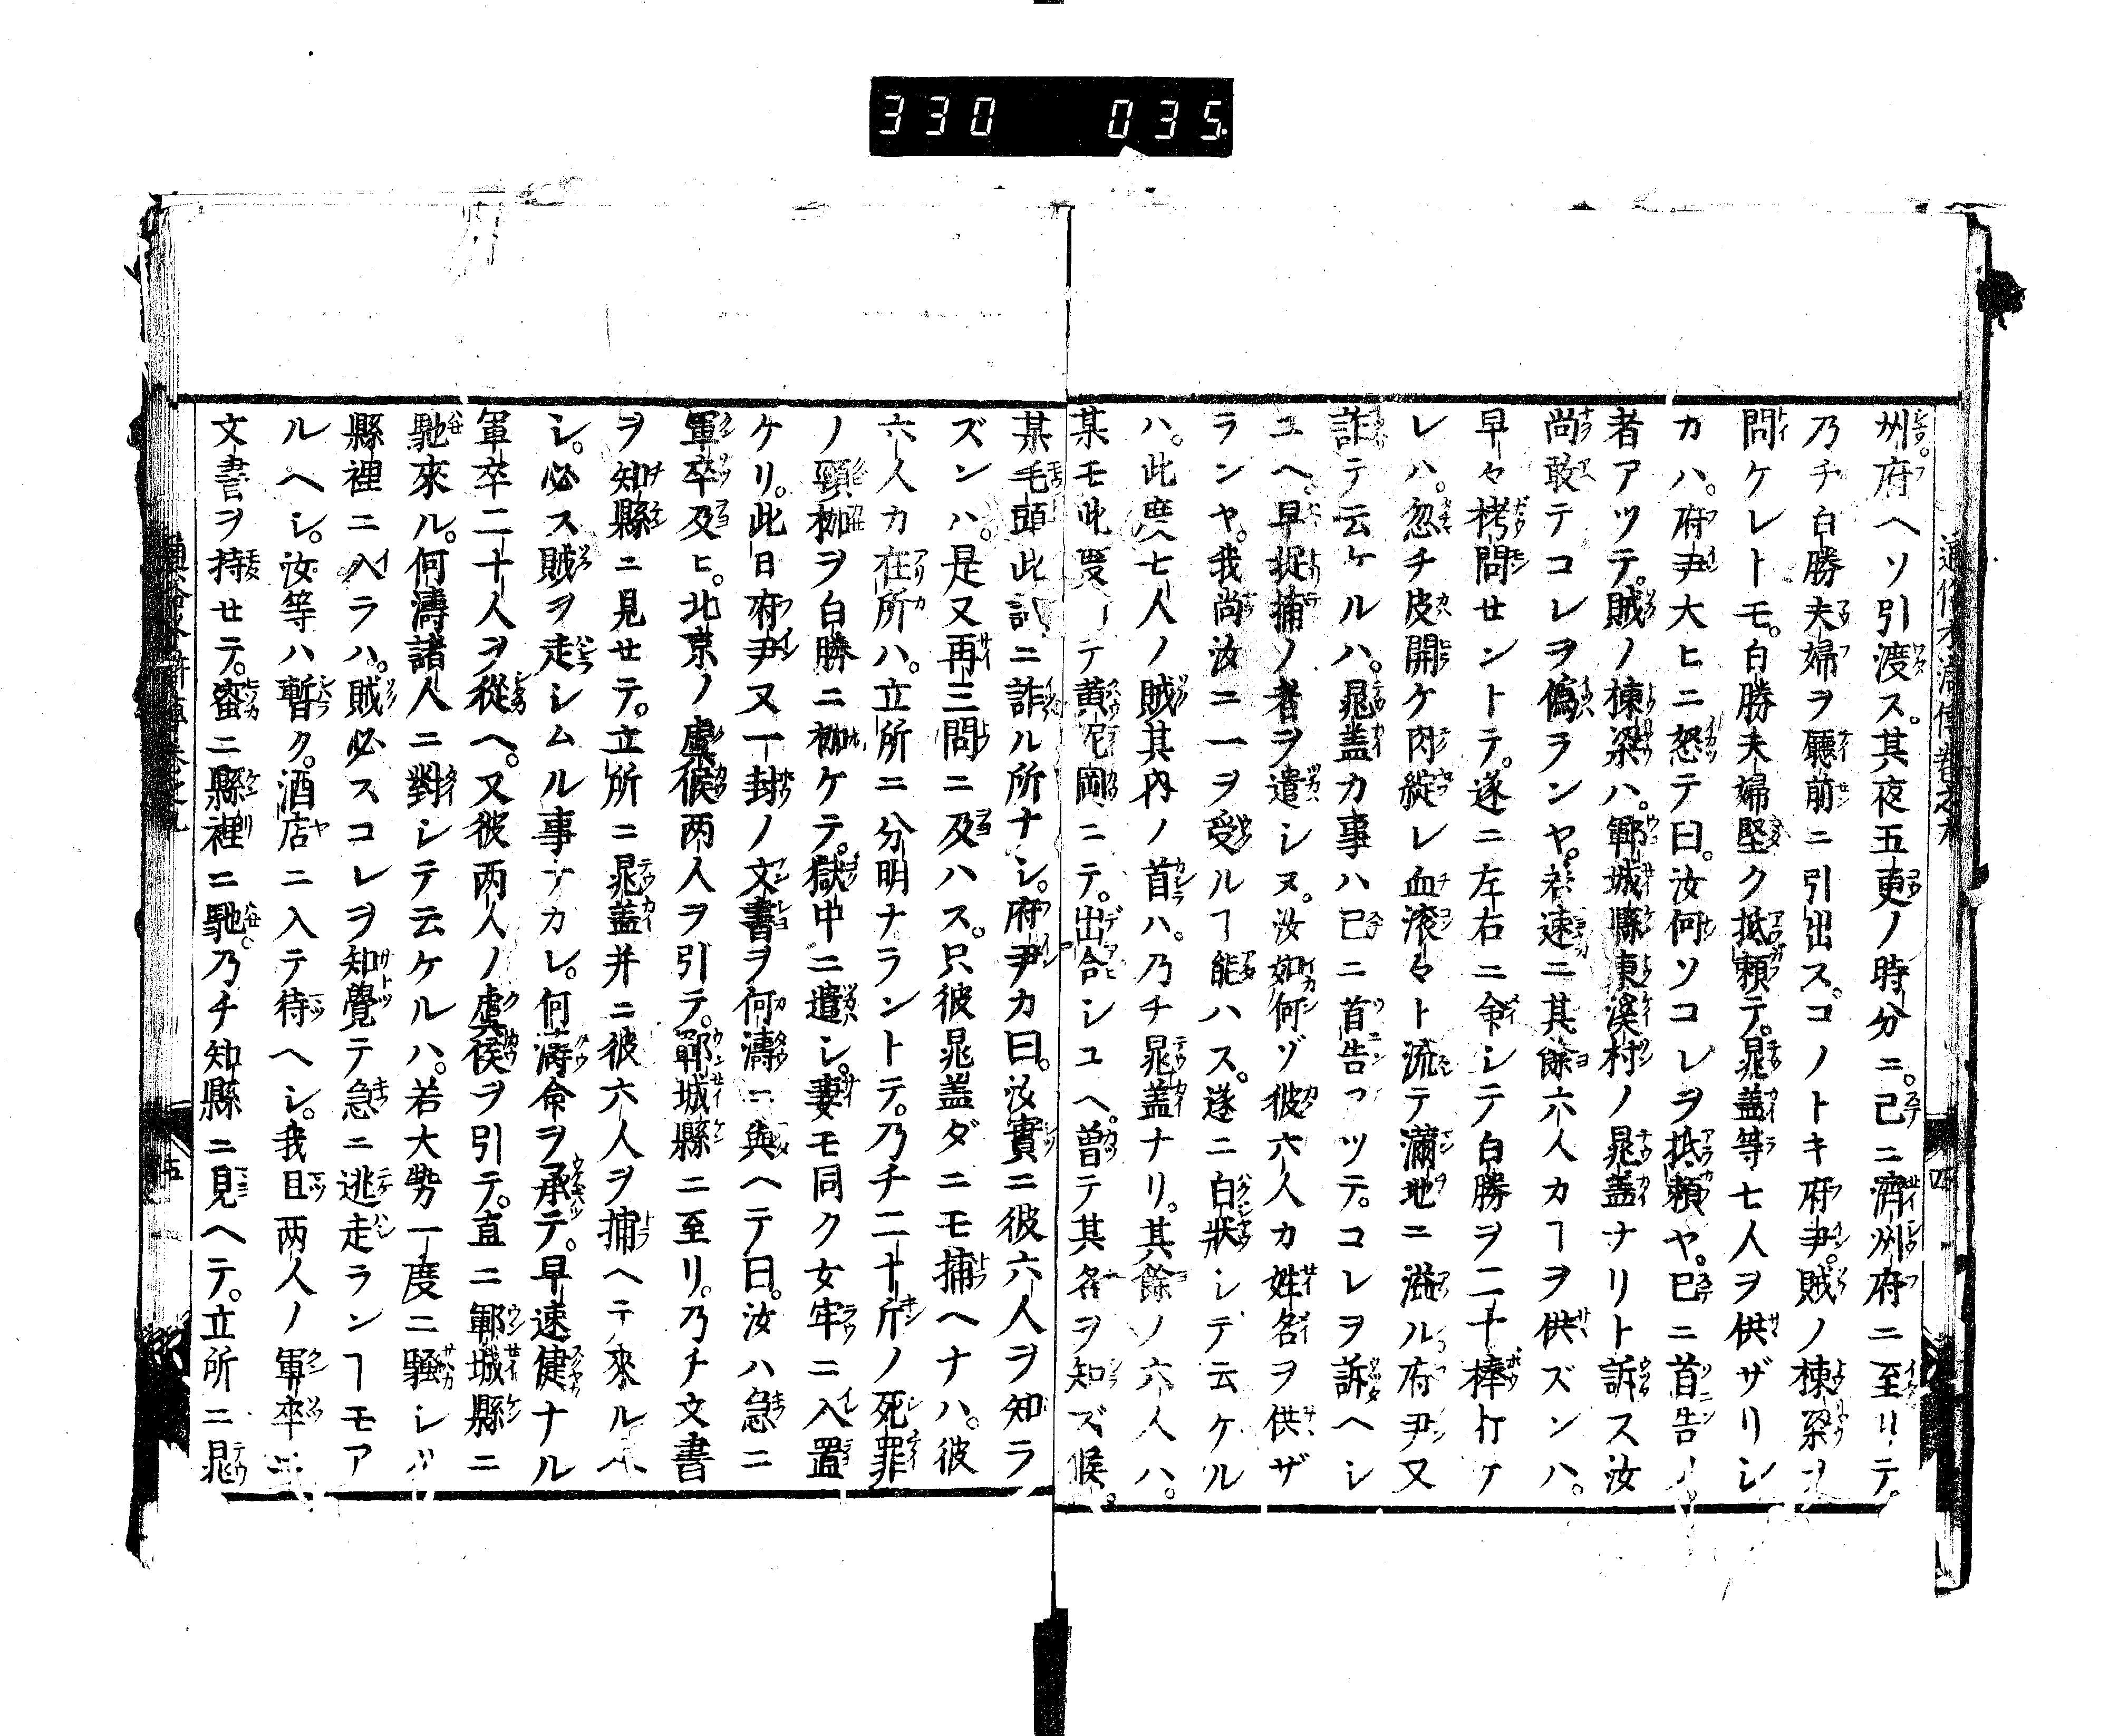 330 035
州府ヘソ引渡ス。其夜五更ノ時分ニ。已ニ濟州府ニ至リテ。
乃チ白勝夫婦ヲ廳前ニ引出ス。コノトキ府尹。賊ノ棟梁ヲ
問ケレトモ。白勝夫婦堅ク抵頼テ。晁盖等七人ヲ供ザリシ
カハ。府尹大ヒニ怒テ曰。汝何ソコレヲ抵頼ヤ。已ニ首告ノ
者アツテ。賊ノ棟梁ハ。鄆城縣東溪村ノ晁盖ナリト訴ス汝
尚敢テコレヲ偽ランヤ。若速ニ其餘六人カヿヲ供ズンハ。
早々拷問セントテ。遂ニ左右ニ命シテ白勝ヲ二十棒打ケ
レハ。忽チ皮開ケ肉綻レ血滚々ト流テ滿地ニ溢ル府尹又
詐テ云ケルハ。晁盖カ事ハ已ニ首告アツテ。コレヲ訴ヘシ
ユヘ。早捉捕ノ者ヲ遣シヌ。汝如何ゾ彼六人カ姓名ヲ供ザ
ランヤ。我尚汝ニ一ヲ受ルヿ能ハス。遂ニ白狀シテ云ケル
ハ。此度七人ノ賊其内ノ首ハ。乃チ晁盖ナリ。其餘ノ六人ハ。
某モ此度ニテ黄泥岡ニテ。出合シユヘ。曽テ其名ヲ知ズ候。
某毛頭此訊ニ詐ル所ナシ。府尹カ曰。汝實ニ彼六人ヲ知ラ
ズンハ。是又再三問ニ及ハス。只彼晁盖ダニモ捕ヘナハ。彼
六人カ在所ハ。立所ニ分明ナラントテ。乃チ二十斤ノ死罪
ノ頸枷ヲ白勝ニ枷ケテ。獄中ニ遣シ。妻モ同ク女牢ニ入置
ケリ。此日府尹又一封ノ文書ヲ何濤ニ與ヘテ曰。汝ハ急ニ
軍卒及ヒ。北京ノ虞候两人ヲ引テ。鄆城縣ニ至リ。乃チ文書
ヲ知縣ニ見セテ。立所ニ晁盖并ニ彼六人ヲ捕ヘテ來ルヘ
シ。必ス賊ヲ走シムル事ナカレ。何濤命ヲ承テ。早速健ナル
軍卒二十人ヲ從ヘ。又彼两人ノ虞候ヲ引テ。直ニ鄆城縣ニ
馳來ル。何濤諸人ニ對シテ云ケルハ。若大勢一度ニ騷シバ
縣裡ニ入ラハ。賊必スコレヲ知覺テ急ニ逃走ランヿモア
ルヘシ。汝等ハ暫ク。酒店ニ入テ待ヘシ。我且两人ノ軍卒ニ
文書ヲ持セテ。蜜ニ縣裡ニ馳。乃チ知縣ニ見ヘテ。立所ニ晁